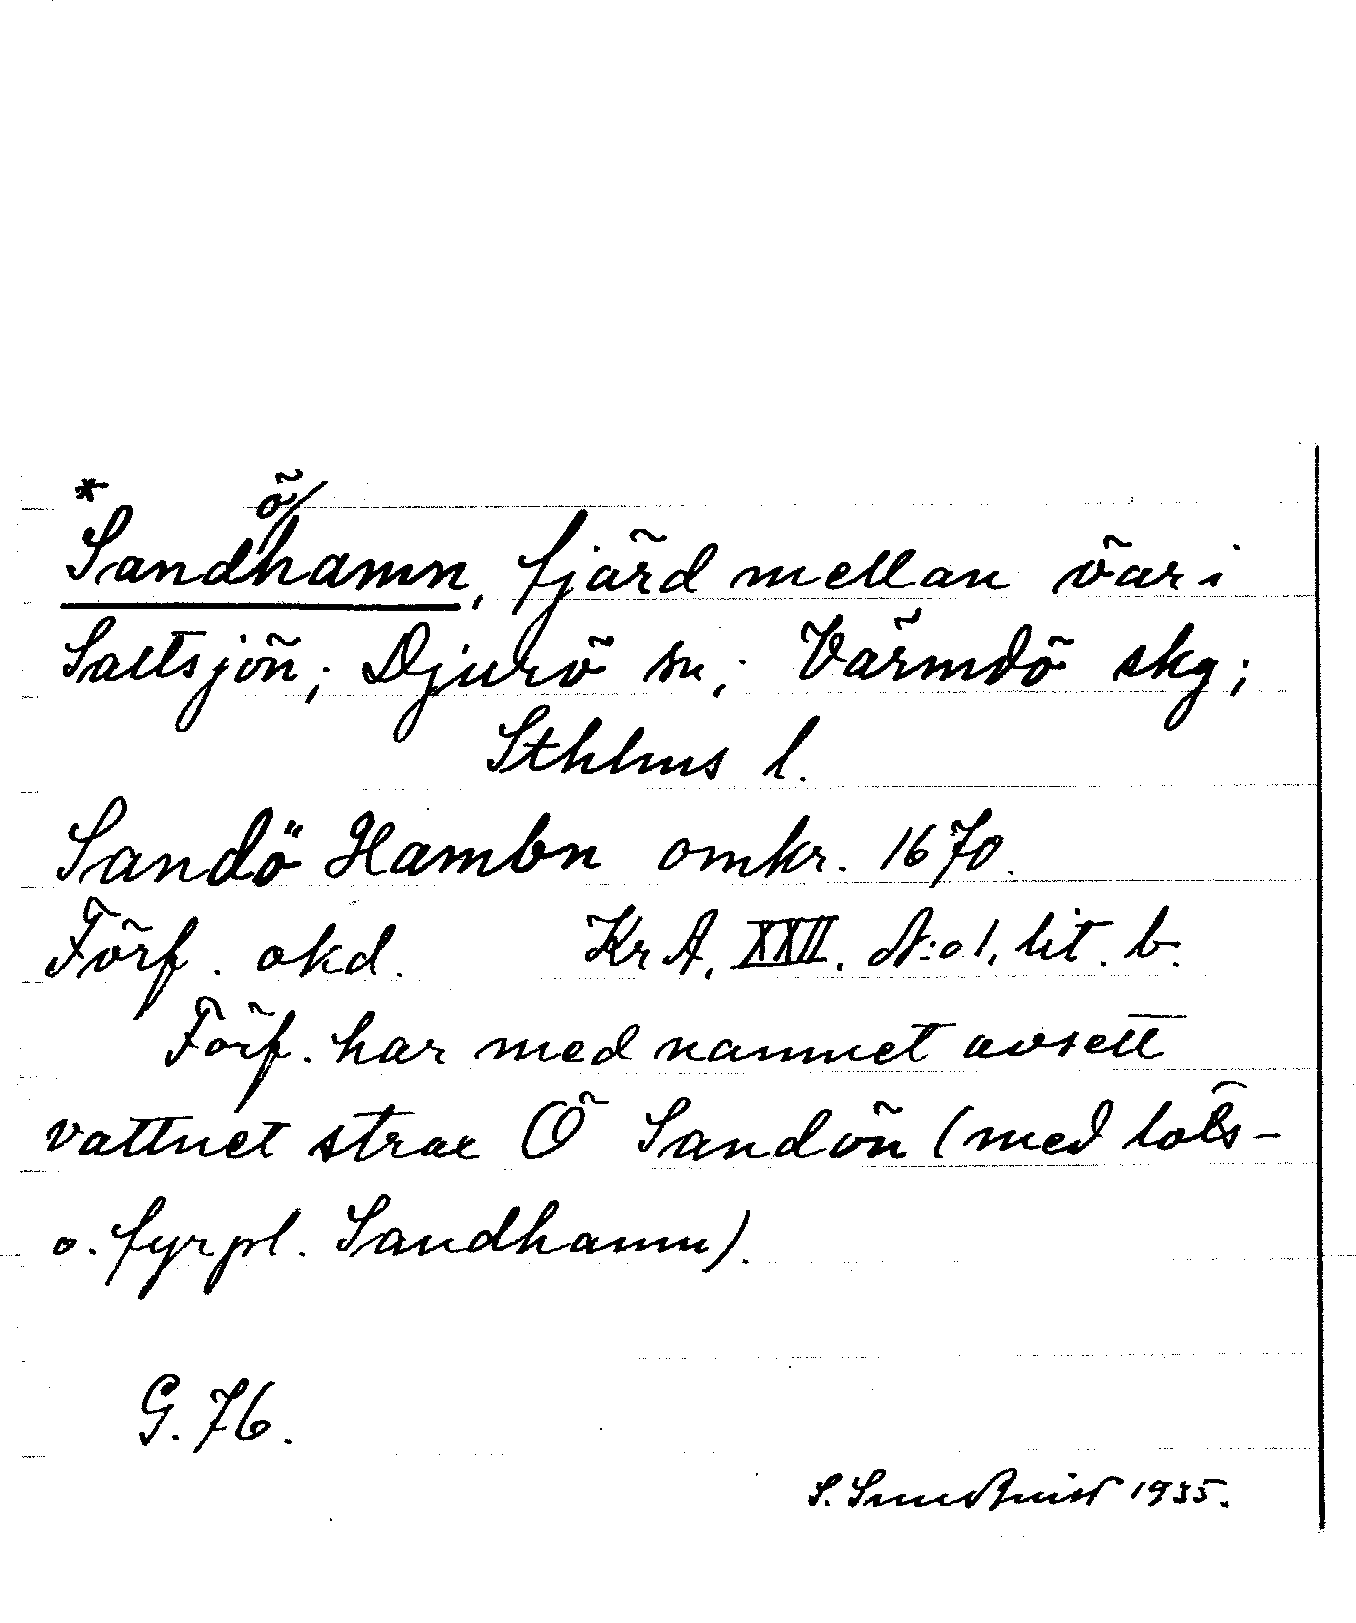 *Sandöhamn, fjärd mellan öar i
Saltsjön; Djurö sn; Värmdö skg;
Sthlms l.
Sandö Hambn omkr. 1670.
Förf. okd. KrA, XXII, N:o 1, lit. b.
Förf. har med namnet avsett
vattnet strax Ö Sandön (med lots-
o. fyrpl. Sandhamn).
G. 76.
S. Sundqvist 1935.